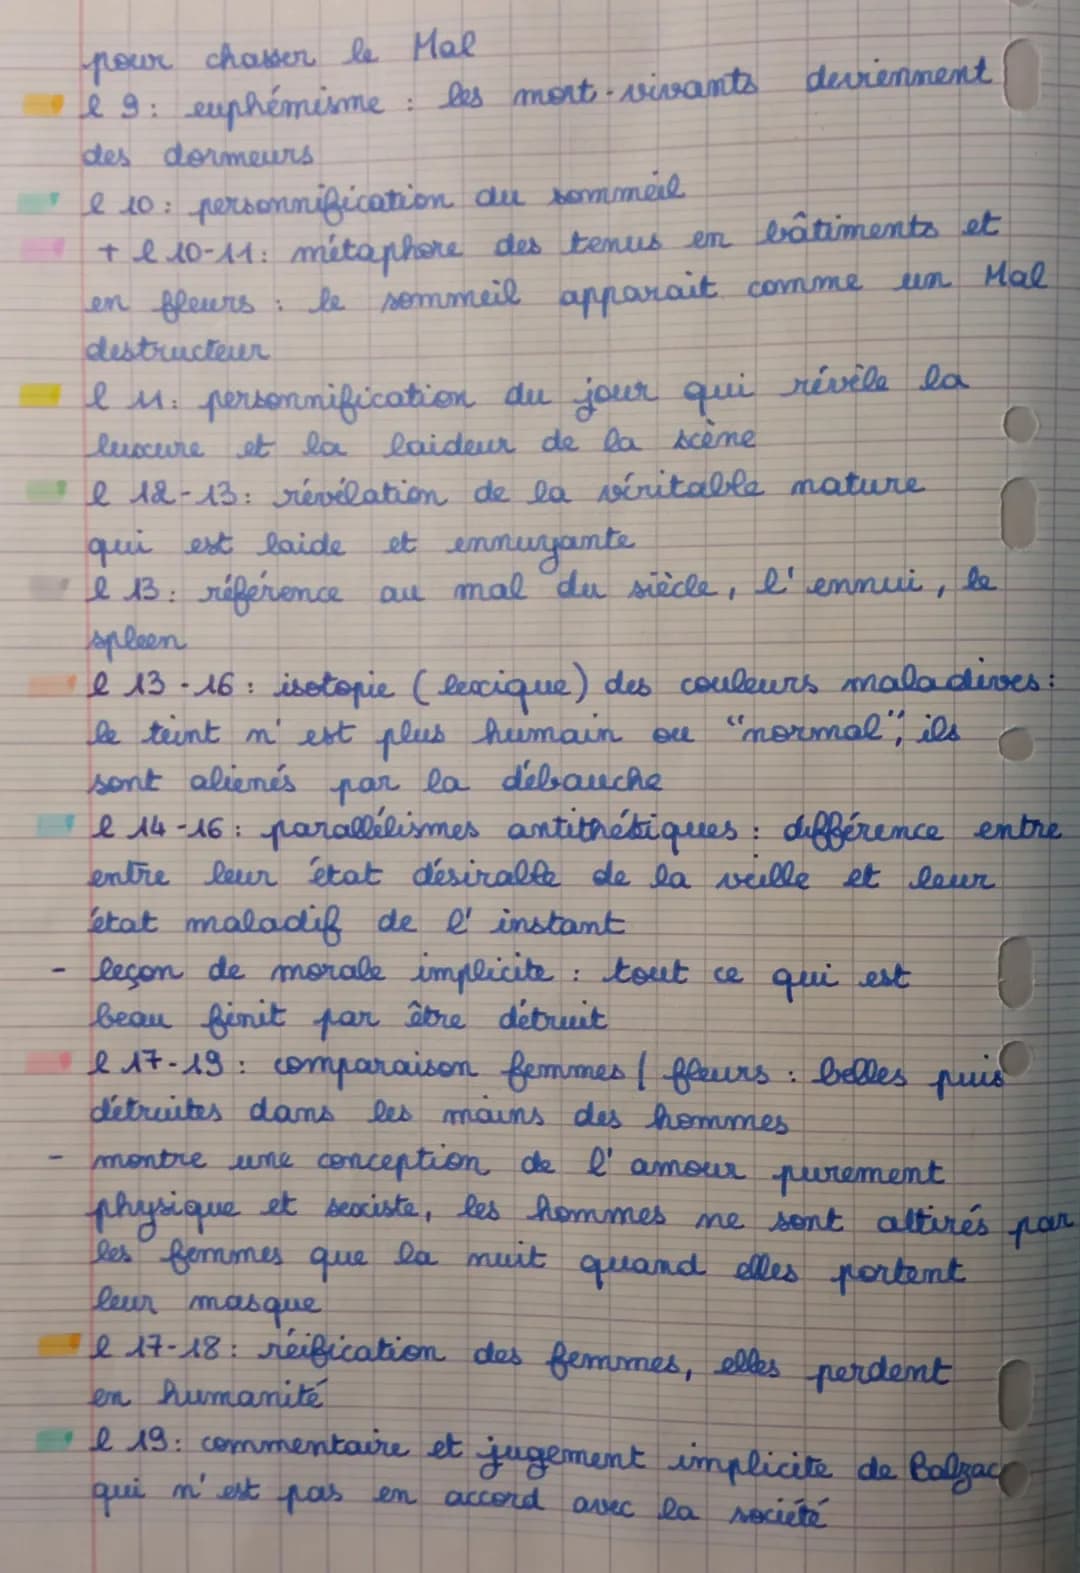 pour chasser le Mal
l 9: euphémisme : les mort-vivants deviennent
des dormeurs
l 10: personnification du sommeil
+ l 10-11: métaphore des tenus en bâtiments et
en fleurs : le sommeil apparait comme un Mal
destructeur
l 11: personnification du jour qui révèle la
luxure et la laideur de la scène
l 12-13: révélation de la véritable nature
qui est laide et ennuyante
l 13: référence au mal du siècle, l'ennui, le
spleen
l 13-16: isotopie (lexique) des couleurs maladives:
le teint n'est plus humain ou "normal", ils
sont alienés par la débauche
l 14-16: parallélismes antithétiques : différence entre
entre leur état désirable de la veille et leur
état maladif de l'instant
- leçon de morale implicite : tout ce qui est
beau finit par être détruit
l 17-19: comparaison femmes / fleurs : belles puis
détruites dans les mains des hommes
- montre une conception de l'amour purement
physique et sexiste, les hommes ne sont attirés par
les femmes que la nuit quand elles portent
leur masque
l 17-18: réification des femmes, elles perdent
en humanité
l 19: commentaire et jugement implicite de Balzac
qui n'est pas en accord avec la société